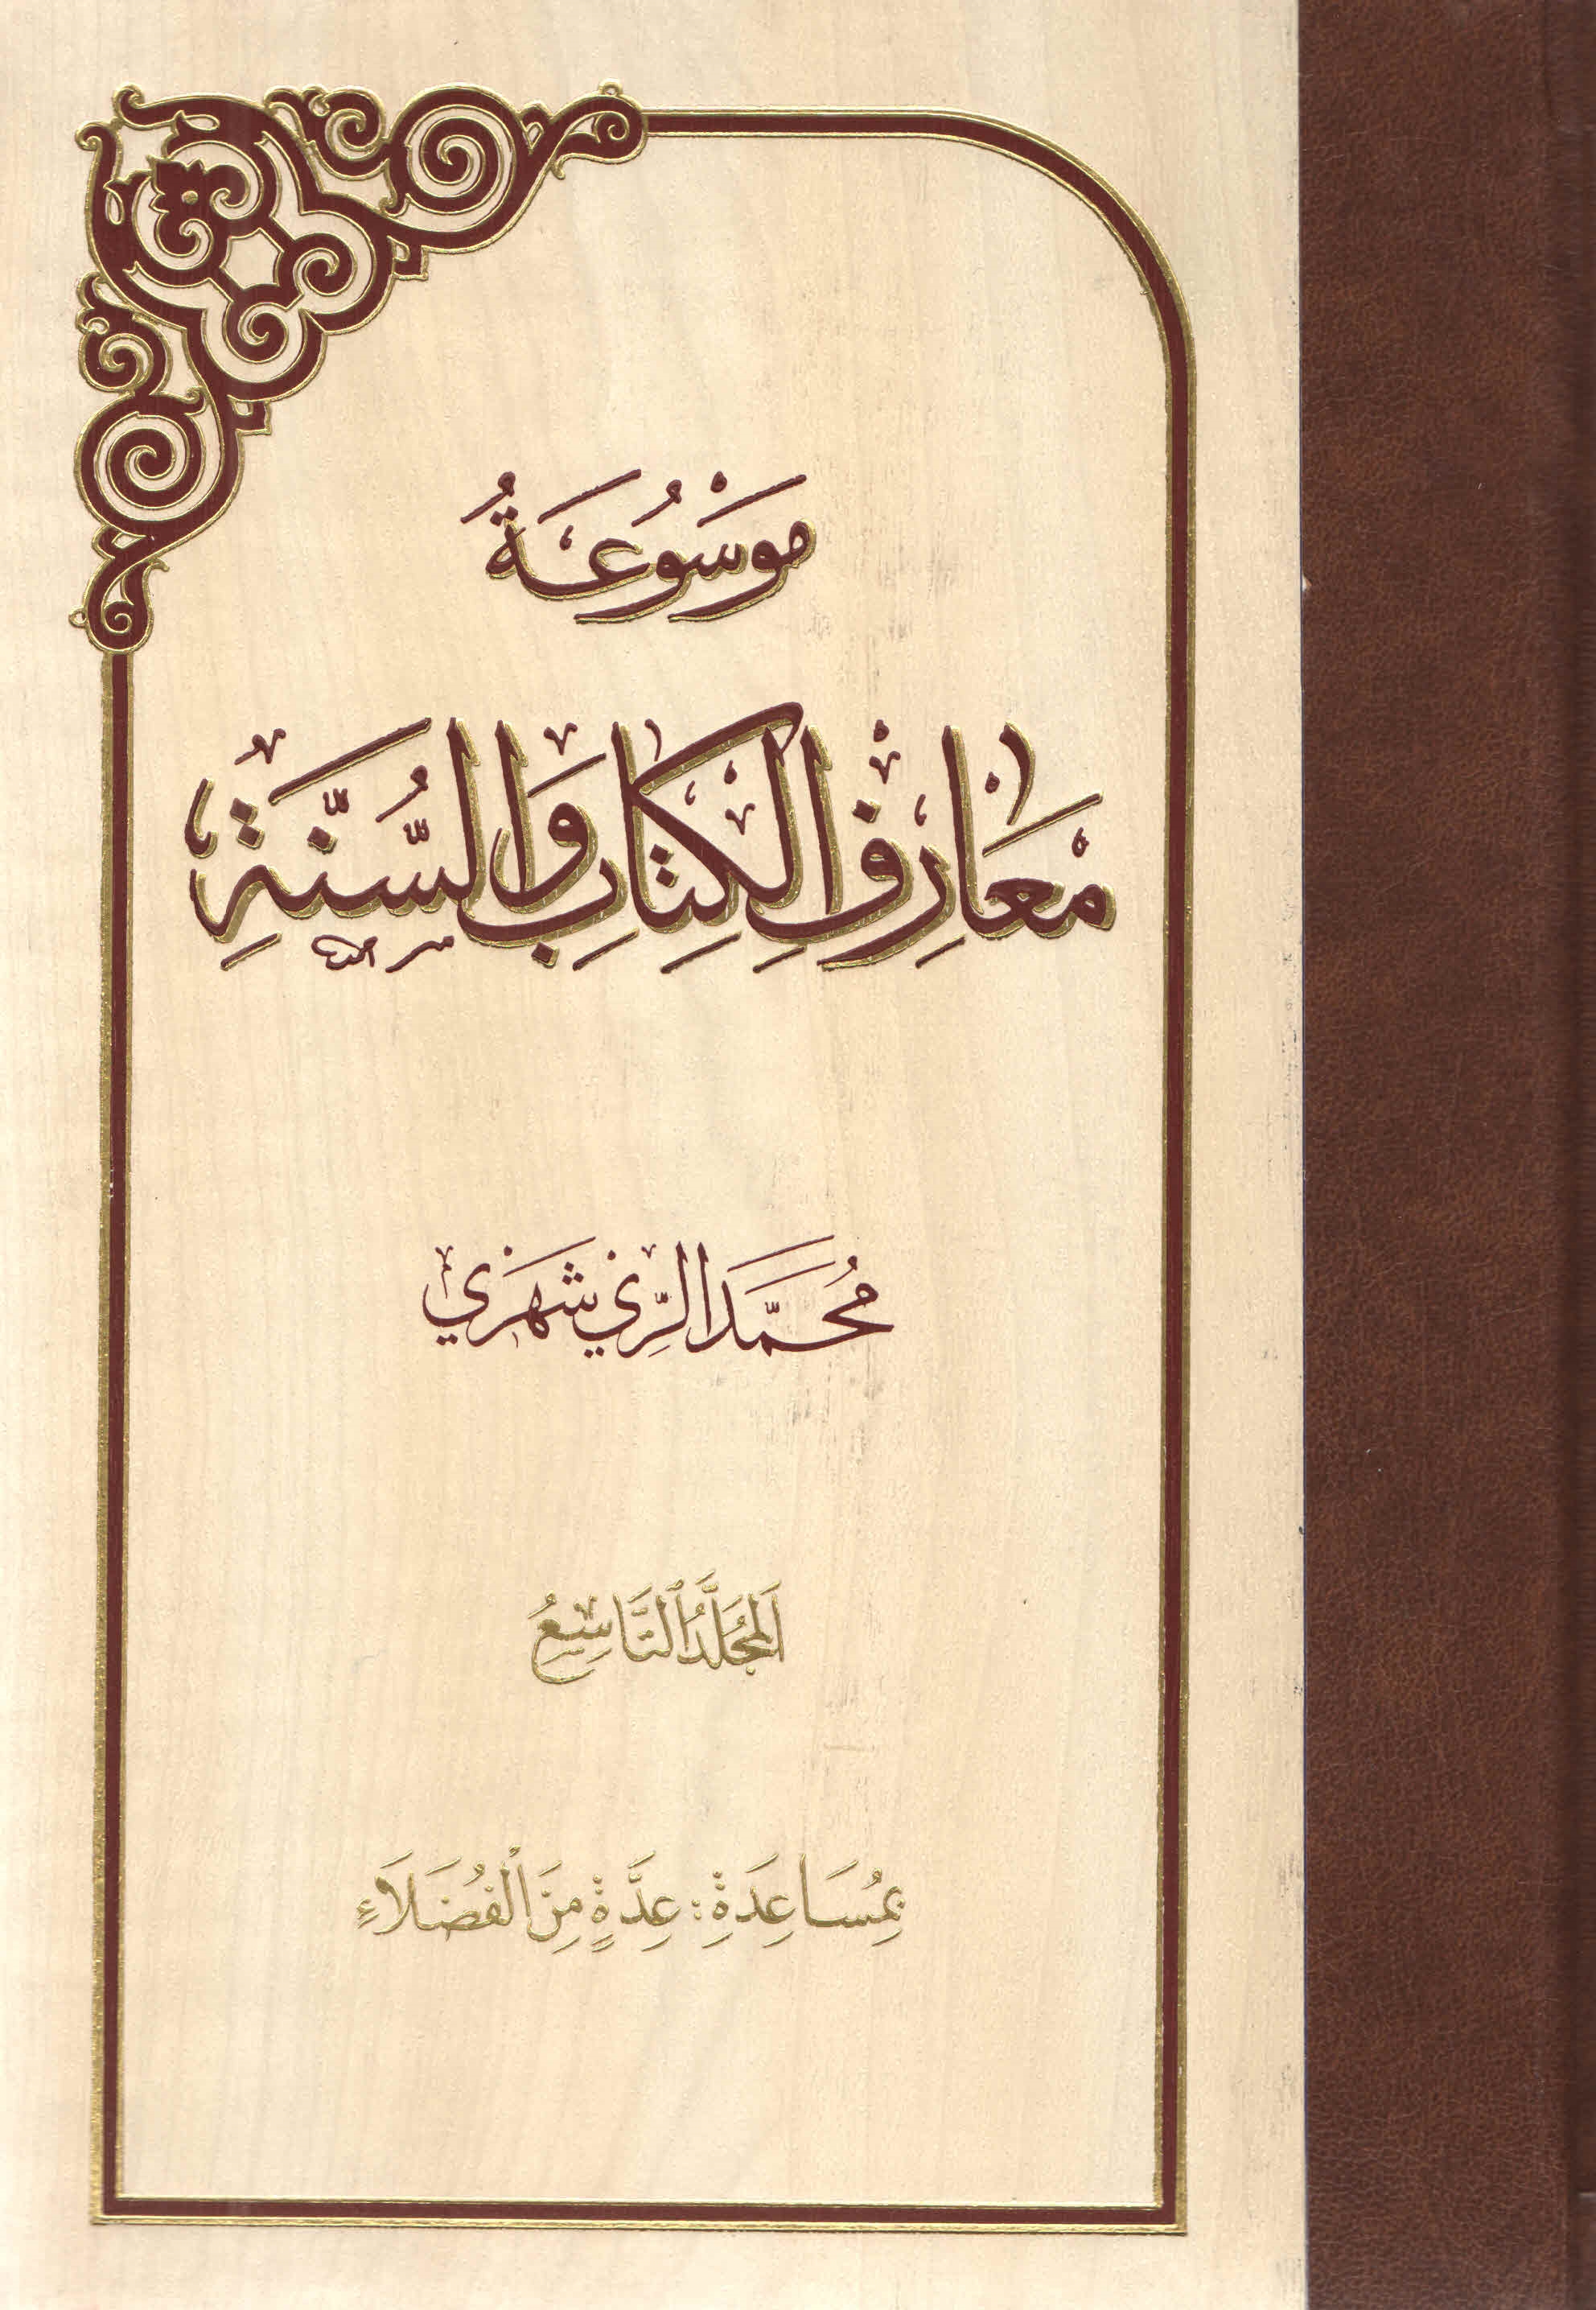 مَوْسُوعَةُ
مَعَارِفِ الْكِتَابِ وَالسُّنَّةِ
مُحَمَّد الرَّيشَهْرِي
اَلْمُجَلَّدُ التَّاسِعُ
بِمُسَاعِدَةِ: عِدَّةٍ مِنَ الْفُضَلَاءِ